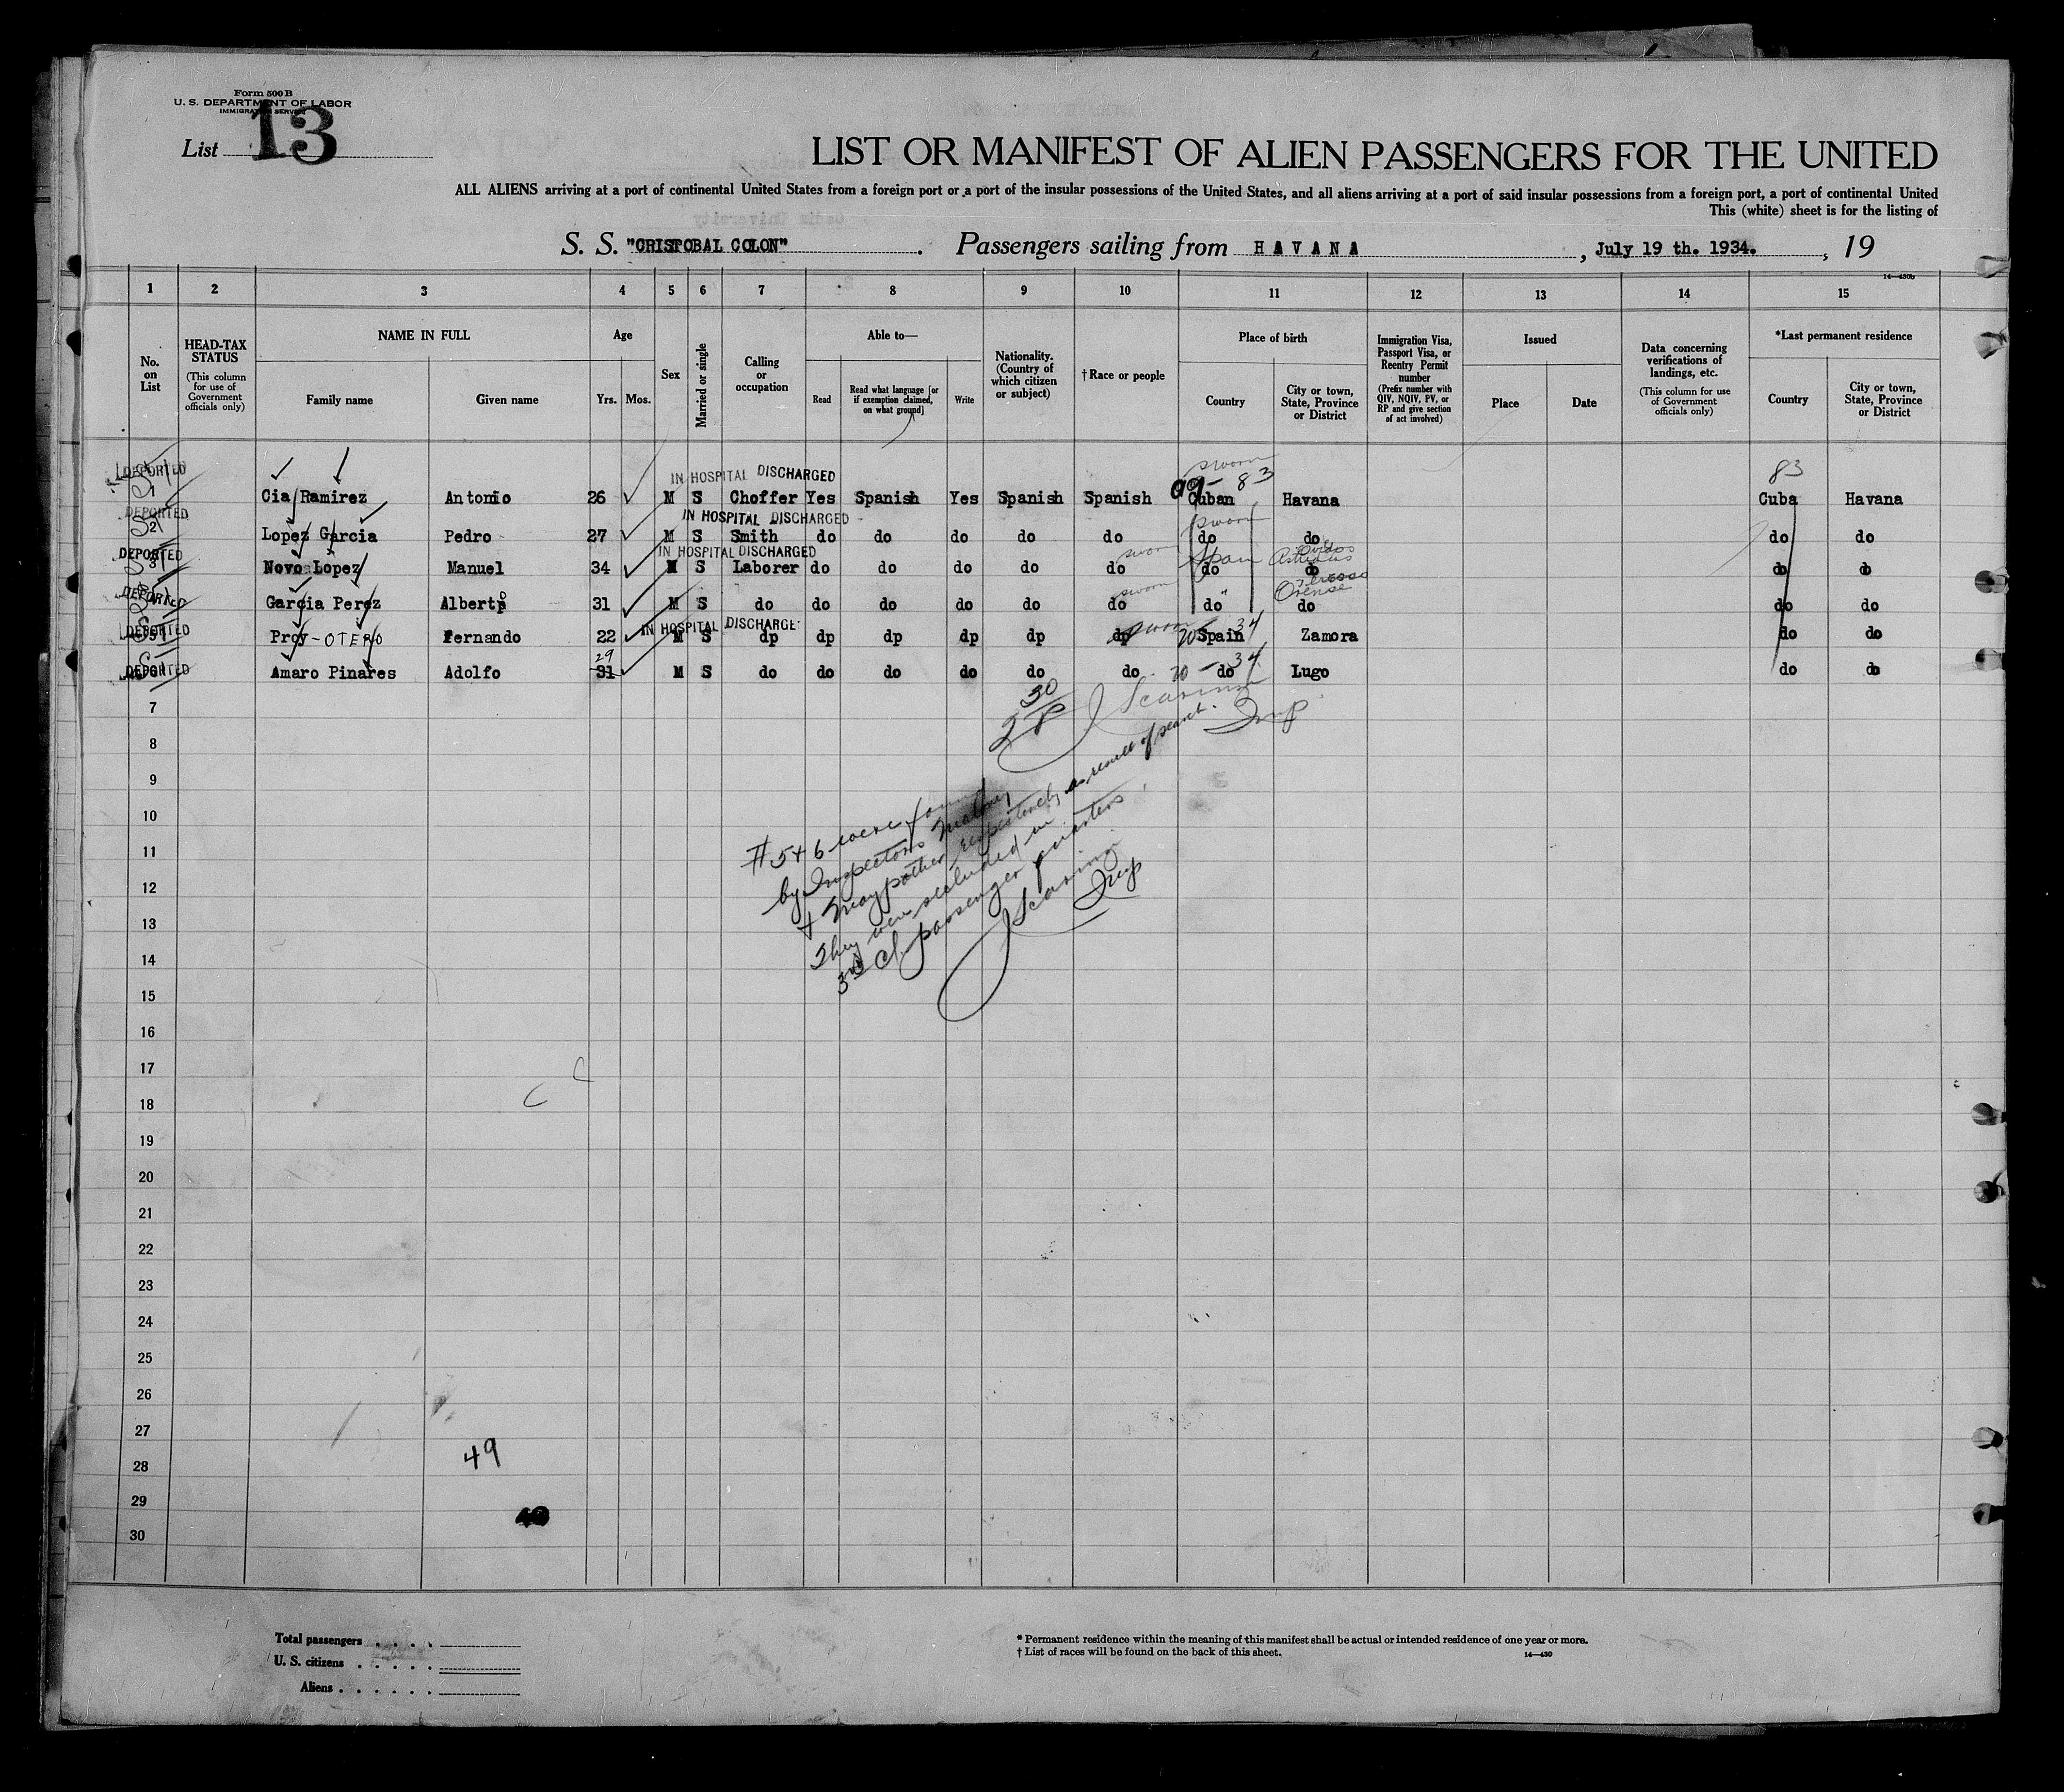 Form 500 B
U. S. DEPARTMENT OF LABOR
IMMIGRATION SERVICE
List 13
LIST OR MANIFEST OF ALIEN PASSENGERS FOR THE UNITED
ALL ALIENS arriving at a port of continental United States from a foreign port or a port of the insular possessions of the United States, and all aliens arriving at a port of said insular possessions from a foreign port, a port of continental United
This (white) sheet is for the listing of
S. S. "CRISTOBAL COLON" . Passengers sailing from HAVANA , July 19 th. 1934. , 19
14—430b
1 2 3 4 5 6 7 8 9 10 11 12 13 14 15
No. on List
HEAD-TAX STATUS (This column for use of Government officials only)
NAME IN FULL
Family name Given name
Age
Yrs. Mos.
Sex
Married or single
Calling or occupation
Able to—
Read Read what language [or if exemption claimed, on what ground] Write
Nationality. (Country of which citizen or subject)
† Race or people
Place of birth
Country City or town, State, Province or District
Immigration Visa, Passport Visa, or Reentry Permit number (Prefix number with QIV, NQIV, PV, or RP and give section of act involved)
Issued
Place Date
Data concerning verifications of landings, etc. (This column for use of Government officials only)
*Last permanent residence
Country City or town, State, Province or District
DEPORTED IN HOSPITAL DISCHARGED sworn 99-83 83
1 Cia Ramirez Antonio 26 M S Choffer Yes Spanish Yes Spanish Spanish Cuban Havana Cuba Havana
DEPORTED IN HOSPITAL DISCHARGED sworn
2 Lopez Garcia Pedro 27 M S Smith do do do do do do do do do
DEPORTED IN HOSPITAL DISCHARGED sworn Spain Oviedo Asturias
3 Novo Lopez Manuel 34 M S Laborer do do do do do do do do do
DEPORTED sworn Orense
Garcia Perez Alberto 31 M S do do do do do do do do do do
DEPORTED IN HOSPITAL DISCHARGE sworn 20 34
5 Proy-OTERO Fernando 22 M S dp dp dp dp dp dp Spain Zamora do do
DEPORTED 29 20-34
Amaro Pinares Adolfo 31 M S do do do do do do do Lugo do do
30
J Scarinzi
Insp
7
8
9
10
11
12
13
14
15
16
17
18
19
20
21
22
23
24
25
26
27
28
29
30
#5+6 were found
by Inspectors
+ Maypother respectively as result of search.
They were secluded in
3rd Cl. passenger quarters.
Insp
49
Total passengers
U. S. citizens
Aliens
* Permanent residence within the meaning of this manifest shall be actual or intended residence of one year or more.
† List of races will be found on the back of this sheet.
14—430